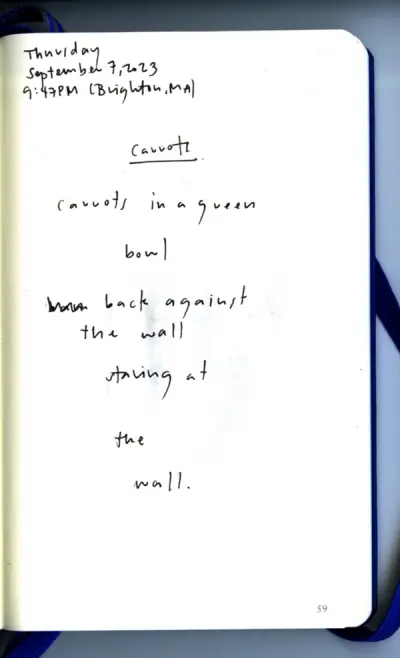 Thursday
September 7, 2023
9:47PM (Brighton, MA)
Carrots.
Carrots in a green
bowl
back against
the wall
staring at
the
wall.
59